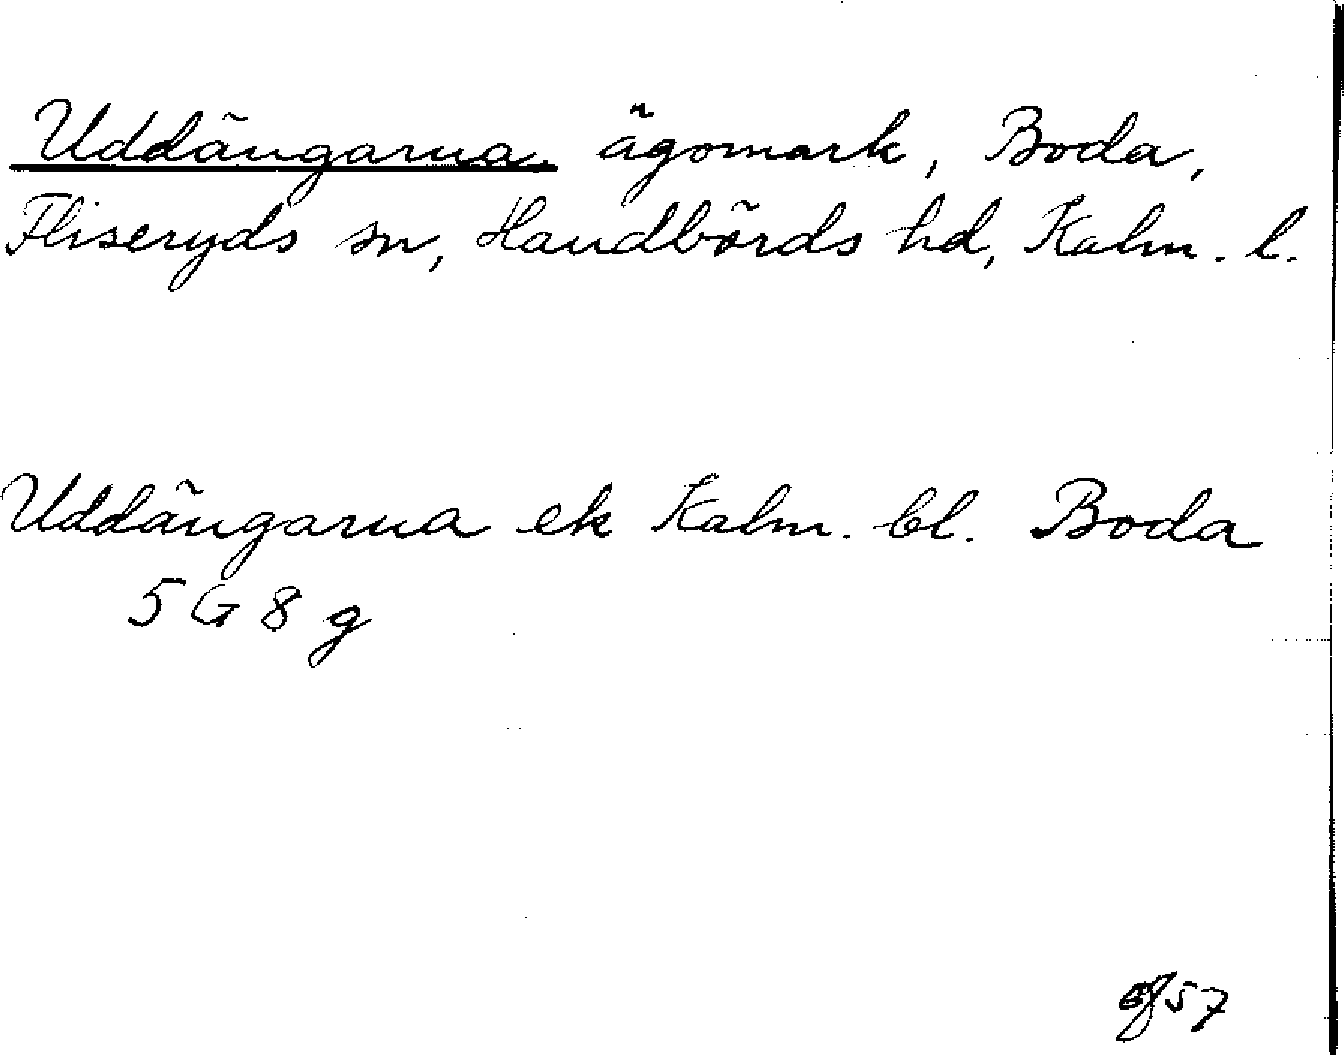 Uddängarna, ägomark, Boda,
Fliseryds sn, Handbörds hd, Kalm. l.
Uddängarna ek Kalm. bl. Boda
5 G 8 g
57